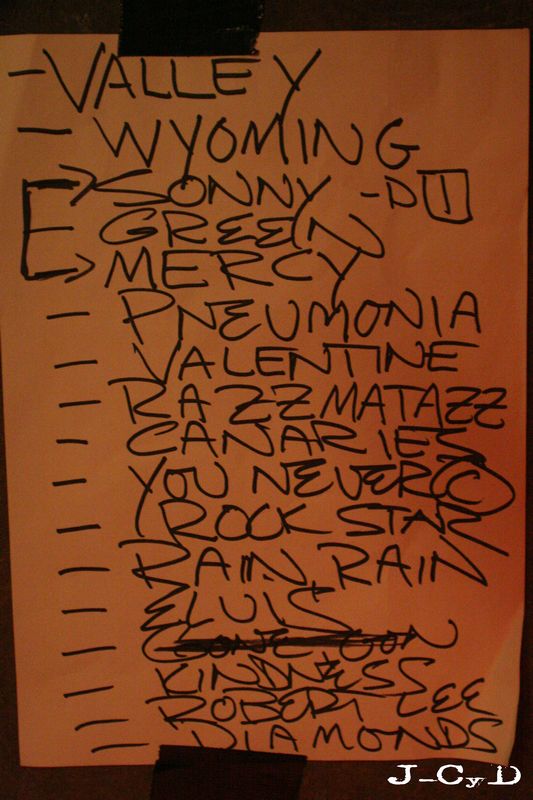 - VALLEY
- WYOMING
SONNY - D 1
GREEN
MERCY
- PNEUMONIA
- VALENTINE
- RAZZMATAZZ
- CANARIES
- YOU NEVER C
- ROCK STAR
- RAIN, RAIN
- ELVIS
- KINDNESS
- ROBERT LEE
- DIAMONDS
J-CyD